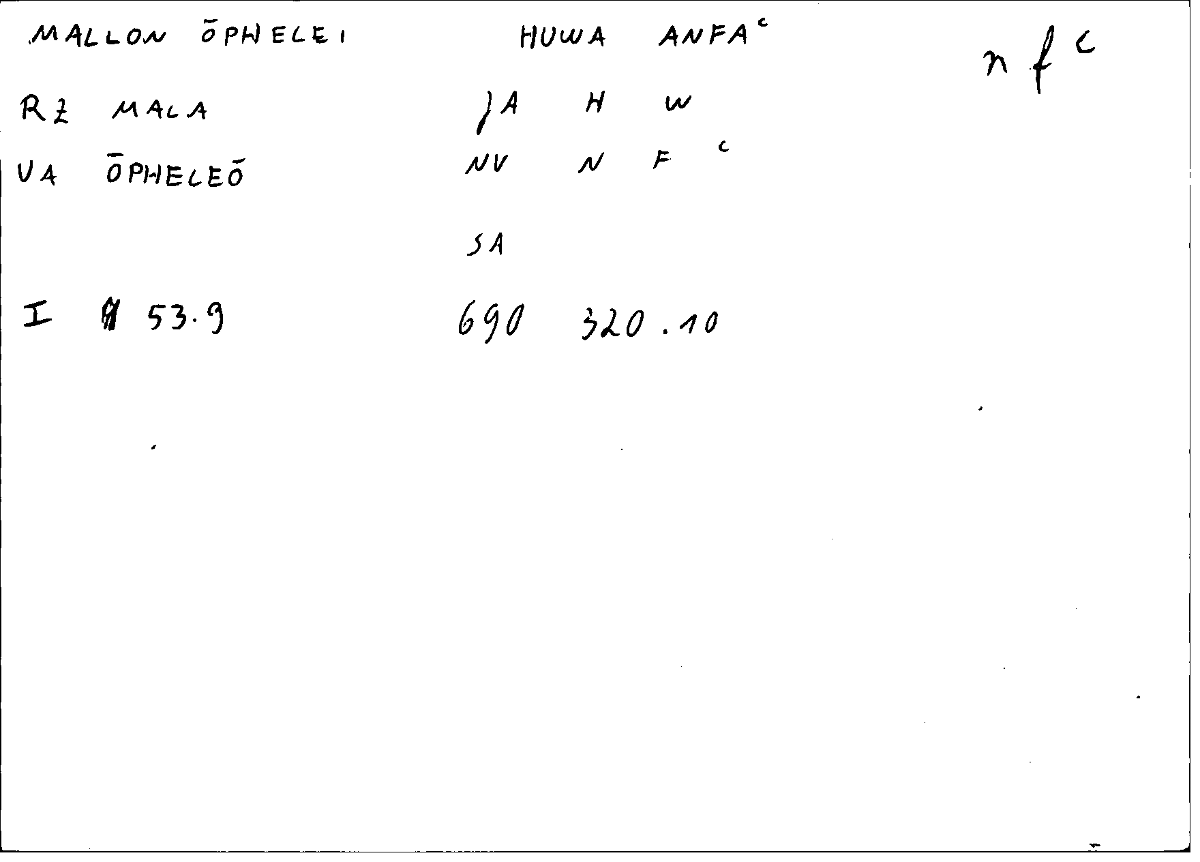 MALLON ŌPHELEI HUWA ANFAᶜ n f ᶜ
RZ MALA JA H W
VA ŌPHELEŌ NV N F ᶜ
SA
I 53.9 690 320.10